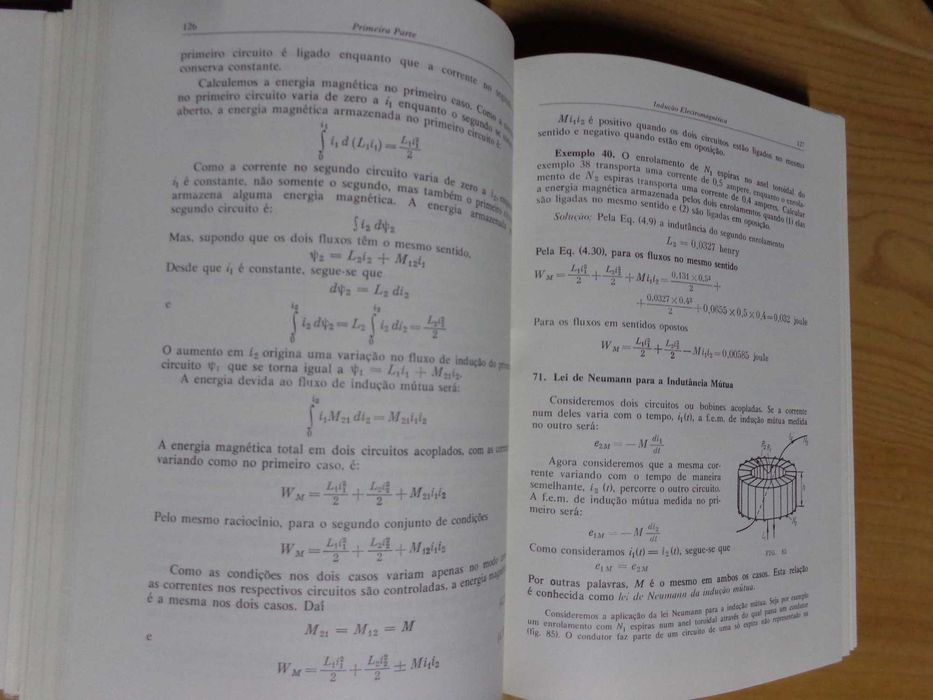 126
Primeira Parte
primeiro circuito é ligado enquanto que a corrente no
conserva constante.
Calculemos a energia magnética no primeiro caso. Como a
no primeiro circuito varia de zero a i₁ enquanto o segundo se
aberto, a energia magnética armazenada no primeiro circuito é:
∫₀^{i₁} i₁ d (L₁i₁) = L₁i₁²/2
Como a corrente no segundo circuito varia de zero a i₂,
i₁ é constante, não somente o segundo, mas também o primeiro
armazena alguma energia magnética. A energia armazenada
segundo circuito é:
∫ i₂ dψ₂
Mas, supondo que os dois fluxos têm o mesmo sentido,
ψ₂ = L₂i₂ + M₁₂i₁
Desde que i₁ é constante, segue-se que
dψ₂ = L₂ di₂
e
∫₀^{i₂} i₂ dψ₂ = L₂ ∫₀^{i₂} i₂ di₂ = L₂i₂²/2
O aumento em i₂ origina uma variação no fluxo de indução do
circuito ψ₁ que se torna igual a ψ₁ = L₁i₁ + M₂₁i₂.
A energia devida ao fluxo de indução mútua será:
∫₀^{i₂} i₁M₂₁ di₂ = M₂₁i₁i₂
A energia magnética total em dois circuitos acoplados, com as
variando como no primeiro caso, é:
W_M = L₁i₁²/2 + L₂i₂²/2 + M₂₁i₁i₂
Pelo mesmo raciocínio, para o segundo conjunto de condições
W_M = L₁i₁²/2 + L₂i₂²/2 + M₁₂i₁i₂
Como as condições nos dois casos variam apenas no modo
as correntes nos respectivos circuitos são controladas, a energia
é a mesma nos dois casos. Daí
M₂₁ = M₁₂ = M
e
W_M = L₁i₁²/2 + L₂i₂²/2 ± Mi₁i₂
Indução Electromagnética
127
Mi₁i₂ é positivo quando os dois circuitos estão ligados no mesmo
sentido e negativo quando estão em oposição.
Exemplo 40. O enrolamento de N₁ espiras no anel toroidal do
exemplo 38 transporta uma corrente de 0,5 ampere, enquanto o enrola-
mento de N₂ espiras transporta uma corrente de 0,4 amperes. Calcular
a energia magnética armazenada pelos dois enrolamentos quando (1) elas
são ligadas no mesmo sentido e (2) são ligadas em oposição.
Solução: Pela Eq. (4.9) a indutância do segundo enrolamento
L₂ = 0,0327 henry
Pela Eq. (4.30), para os fluxos no mesmo sentido
W_M = L₁i₁²/2 + L₂i₂²/2 + Mi₁i₂ = 0,131 × 0,5²/2 +
+ 0,0327 × 0,4²/2 + 0,0655 × 0,5 × 0,4 = 0,032 joule
Para os fluxos em sentidos opostos
W_M = L₁i₁²/2 + L₂i₂²/2 − Mi₁i₂ = 0,00585 joule
71. Lei de Neumann para a Indutância Mútua
Consideremos dois circuitos ou bobines acopladas. Se a corrente
num deles varia com o tempo, i₁(t), a f.e.m. de indução mútua medida
no outro será:
e₂M = − M di₁/dt
Agora consideremos que a mesma cor-
rente variando com o tempo de maneira
semelhante, i₂ (t), percorre o outro circuito.
A f.e.m. de indução mútua medida no pri-
meiro será:
e₁M = − M di₂/dt
Como consideramos i₁(t) = i₂(t), segue-se que
e₁M = e₂M
FIG. 85
Por outras palavras, M é o mesmo em ambos os casos. Esta relação
é conhecida como lei de Neumann da indução mútua.
Consideremos a aplicação da lei Neumann para a indução mútua. Seja por exemplo
um enrolamento com N₁ espiras num anel toroidal através do qual passa um condutor
(fig. 85). O condutor faz parte de um circuito de uma só espira não representado na